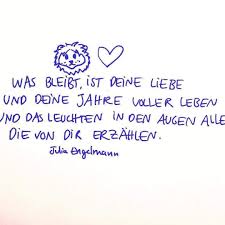 WAS BLEIBT, IST DEINE LIEBE
UND DEINE JAHRE VOLLER LEBEN
UND DAS LEUCHTEN IN DEN AUGEN ALLE
DIE VON DIR ERZÄHLEN.
Julia Engelmann